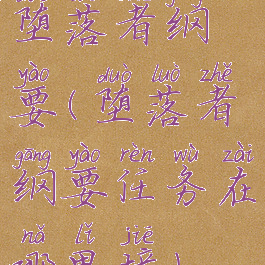 堕落者纲
yào duò luò zhě
要(堕落者
gāng yào rèn wù zài
纲要任务在
nǎ lǐ jiē
哪里接)